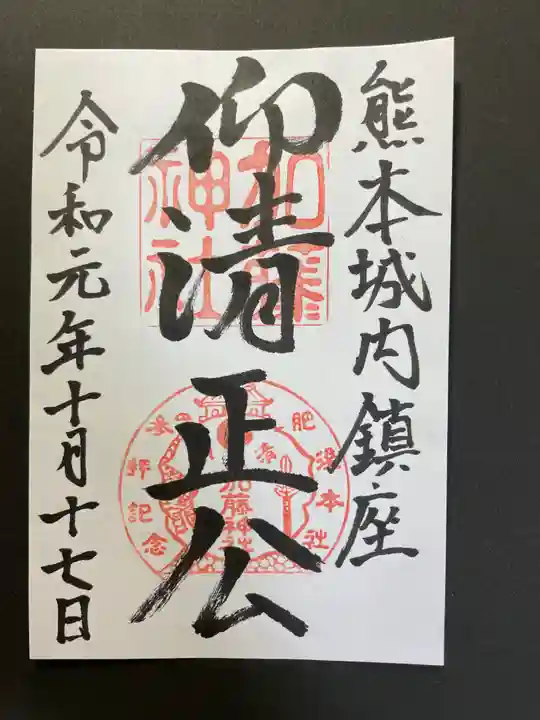 熊本城内鎮座
仰清正公
加藤
神社
肥後本社
加藤神社
参拝記念
令和元年十月十七日